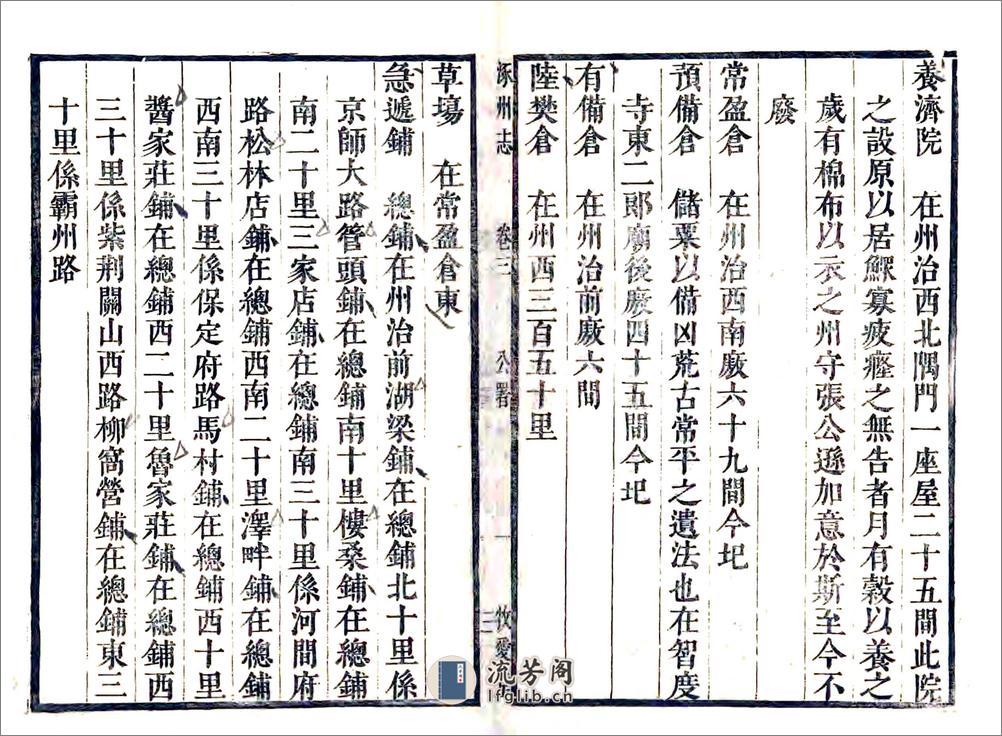 養濟院　在州治西北隅門一座屋二十五間此院
之設原以居鰥寡疲癃之無告者月有穀以養之
歲有棉布以衣之州守張公遜加意於斯至今不
廢
常盈倉　在州治西南廒六十九間今圮
預備倉　儲粟以備凶荒古常平之遺法也在智度
寺東二郎廟後廒四十五間今圮
有備倉　在州治前廒六間
陸樊倉　在州西三百五十里
涿州志　卷三　公署　三
草塲　在常盈倉東
急遞鋪　總鋪在州治前湖梁鋪在總鋪北十里係
京師大路管頭鋪在總鋪南十里樓桑鋪在總鋪
南二十里三家店鋪在總鋪南三十里係河間府
路松林店鋪在總鋪西南二十里澤畔鋪在總鋪
西南三十里係保定府路馬村鋪在總鋪西十里
醬家莊鋪在總鋪西二十里魯家莊鋪在總鋪西
三十里係紫荆關山西路柳窩營鋪在總鋪東三
十里係霸州路
流芳阁
lfglib.cn